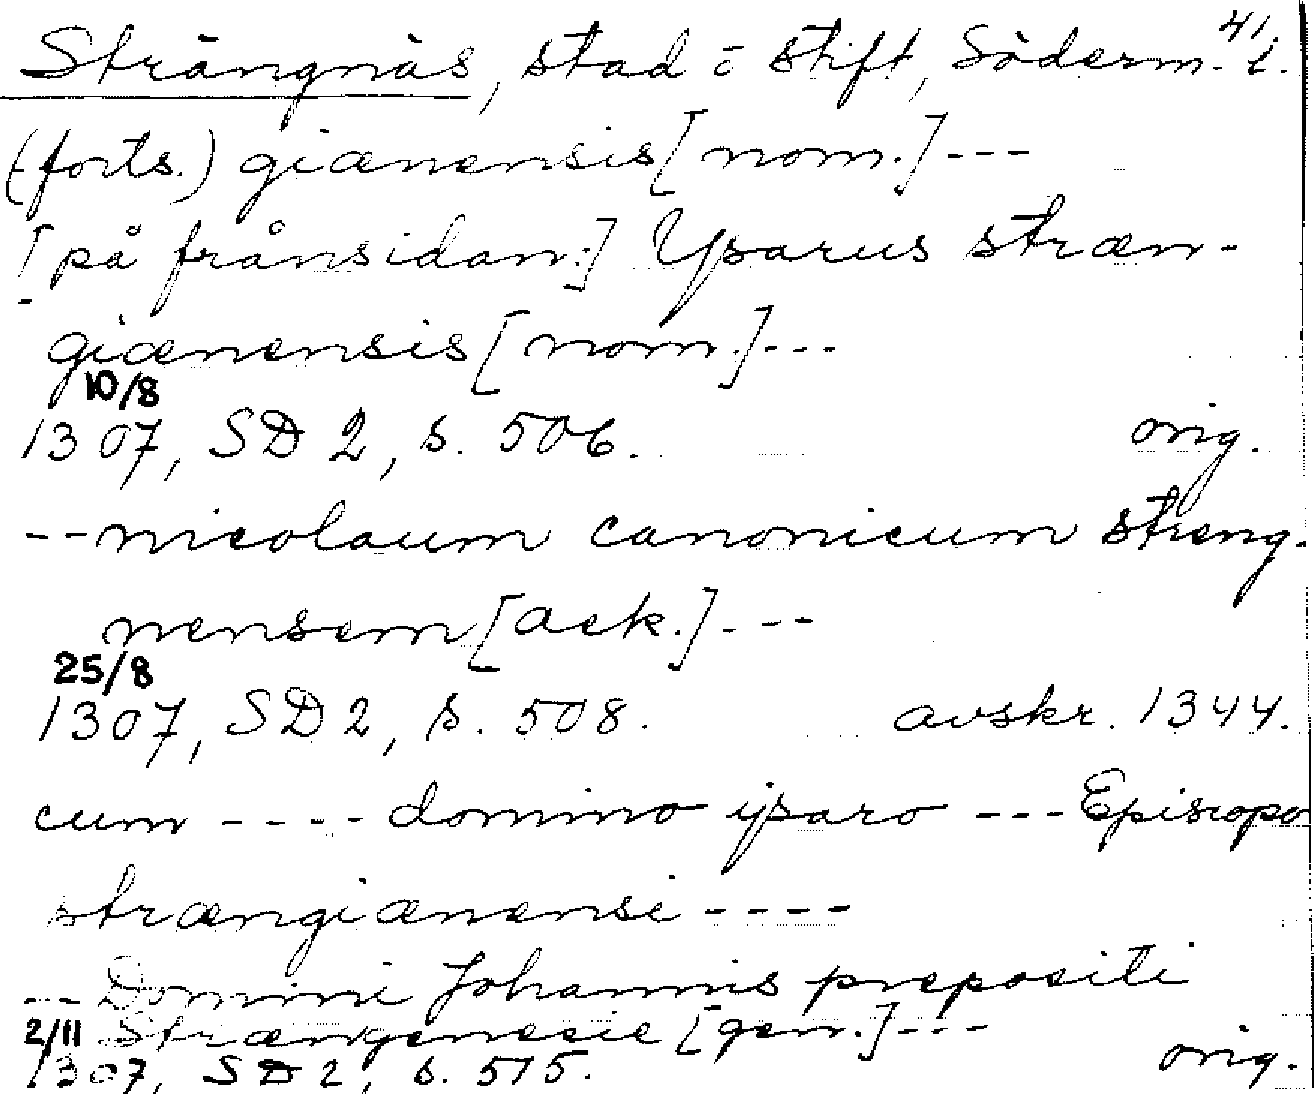 41.
Strängnäs, stad o stift, Söderm. l.
(forts.) giænensis [nom.] ---
[på frånsidan:] Ysarus stræn-
giænensis [nom.] ---
10/8
1307, SD 2, s. 506. orig.
-- nicolaum canonicum streng-
nensem [ack.] ---
25/8
1307, SD 2, s. 508. avskr. 1344.
cum ---- domino ysaro --- Episcopo
strængiænensi ----
-- Domini Johannis prepositi
Strængenesie [gen.] ---
2/11
1307, SD 2, s. 515. orig.